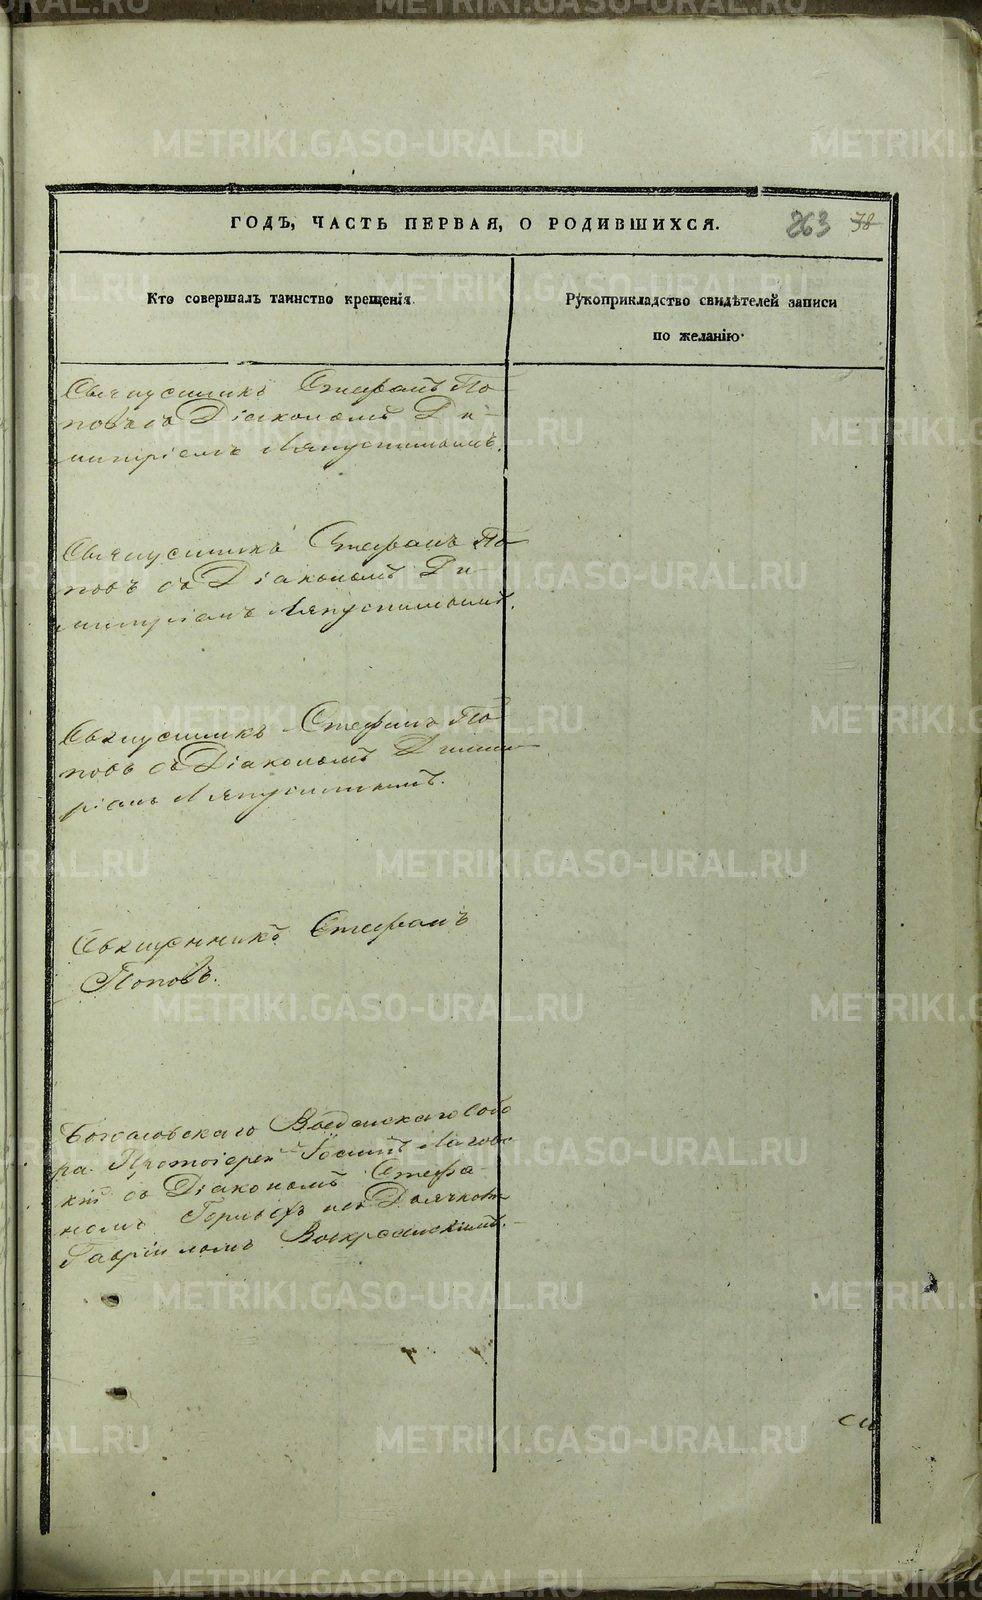 ГОДЪ, ЧАСТЬ ПЕРВАЯ, О РОДИВШИХСЯ.
263 38
Кто совершалъ таинство крещенія.
Рукоприкладство свидѣтелей записи
по желанію.
Священникъ Стефанъ По-
повъ съ Діакономъ Ди-
митріемъ Ляпустинымъ.
Священникъ Стефанъ По-
повъ съ Діакономъ Ди-
митріемъ Ляпустинымъ.
Священникъ Стефанъ По-
повъ съ Діакономъ Димит-
ріемъ Ляпустинымъ.
Священникъ Стефанъ
Поповъ.
Богословскаго Введенскаго Собо
ра Протоіерей Іоаннъ
съ Діакономъ Стефа-
номъ
Гавріиломъ Воскресенскимъ.
METRIKI.GASO-URAL.RU